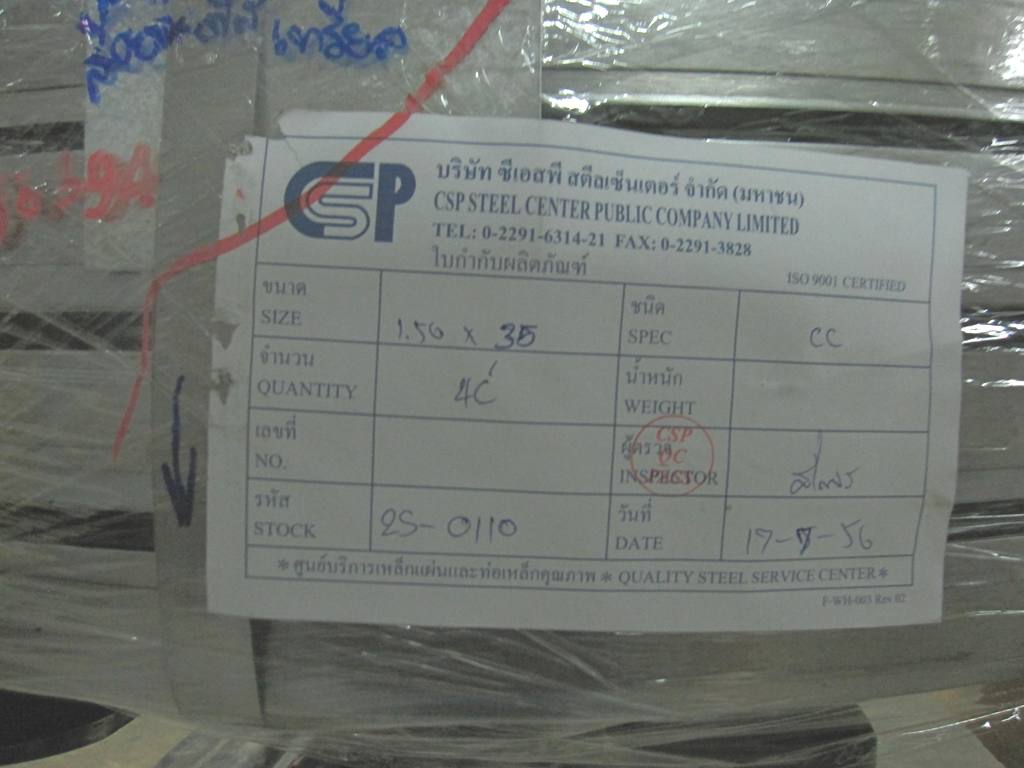 CSP
บริษัท ซีเอสพี สตีลเซ็นเตอร์ จำกัด (มหาชน)
CSP STEEL CENTER PUBLIC COMPANY LIMITED
TEL: 0-2291-6314-21 FAX: 0-2291-3828
ใบกำกับผลิตภัณฑ์
ISO 9001 CERTIFIED
ขนาด
SIZE
1.50 x 35
ชนิด
SPEC
CC
จำนวน
QUANTITY
4C
น้ำหนัก
WEIGHT
เลขที่
NO.
ผู้ตรวจ
INSPECTOR
CSP
QC
รหัส
STOCK
2S-0110
วันที่
DATE
17-7-56
* ศูนย์บริการเหล็กแผ่นและท่อเหล็กคุณภาพ * QUALITY STEEL SERVICE CENTER *
F-WH-003 Rev.02